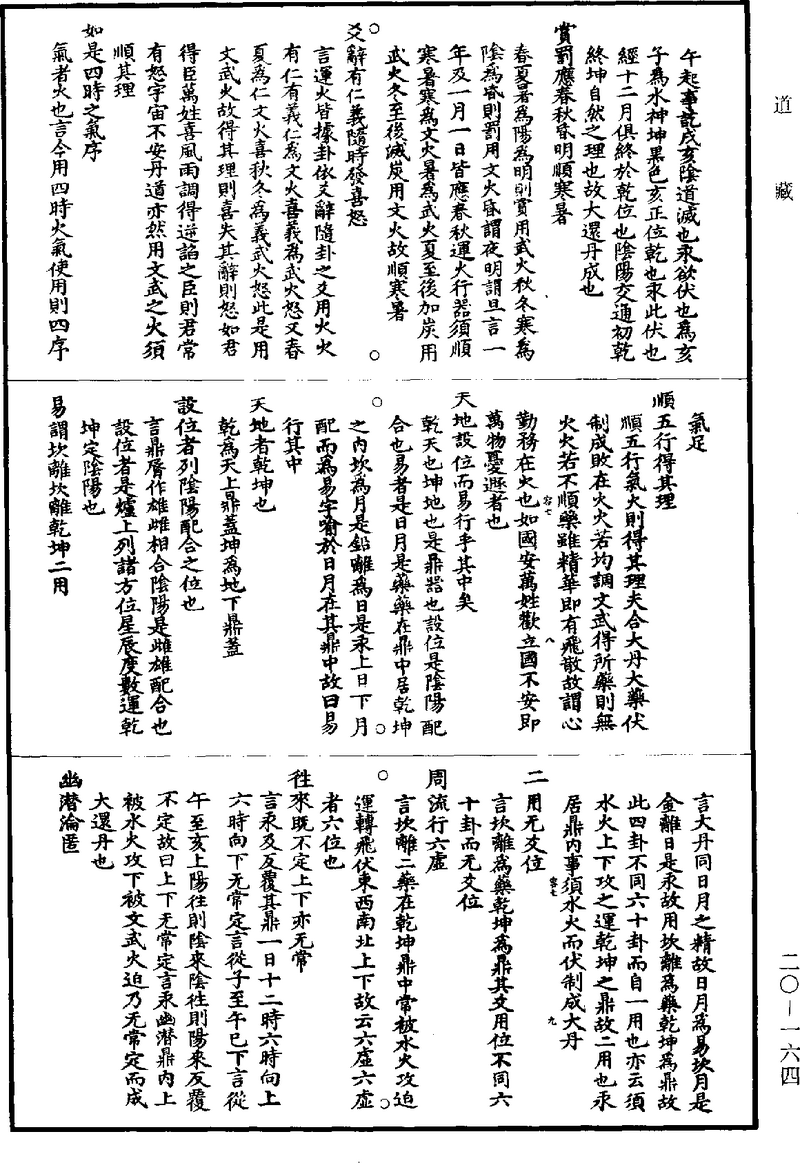 道藏
午起事訖戌亥陰道滅也汞欲伏也爲亥
子爲水神坤黑色亥正位乾也汞此伏也
經十二月俱終於乾位也陰陽交通初乾
終坤自然之理也故大還丹成也
賞罰應春秋昏明順寒暑
春夏暑爲陽爲明則賞用武火秋冬寒爲
陰爲昏則罰用文火昏謂夜明謂旦言一
年及一月一日皆應春秋運火行器須順
寒暑寒爲文火暑爲武火夏至後加炭用
武火冬至後減炭用文火故順寒暑
爻辭有仁義隨時發喜怒
言運火皆據卦依爻辭隨卦之爻用火火
有仁有義仁爲文火喜義爲武火怒又春
夏爲仁文火喜秋冬爲義武火怒此是用
文武火故得其理則喜失其辭則怒如君
得臣萬姓喜風雨調得逆諂之臣則君常
有怒宇宙不安丹道亦然用文武之火須
順其理
如是四時之氣序
氣者火也言今用四時火氣使用則四序
氣足
順五行得其理
順五行氣火則得其理夫合大丹大藥伏
制成敗在火火若均調文武得所藥則無
火火若不順藥雖精華即有飛散故謂心
勤務在火也如國安萬姓歡立國不安即
萬物憂遯者也
天地設位而易行乎其中矣
乾天也坤地也是鼎器也設位是陰陽配
合也易者是日月是藥藥在鼎中居乾坤
之內坎爲月是鉛離爲日是汞上日下月
配而爲易字喻於日月在其鼎中故曰易
行其中
天地者乾坤也
乾爲天上鼎蓋坤爲地下鼎蓋
設位者列陰陽配合之位也
言鼎脣作雄雌相合陰陽是雌雄配合也
設位者是爐上列諸方位星辰度數運乾
坤定陰陽也
易謂坎離坎離乾坤二用
言大丹同日月之精故日月爲易坎月是
金離日是汞故用坎離爲藥乾坤爲鼎故
此四卦不同六十卦而自一用也亦云須
水火上下攻之運乾坤之鼎故二用也汞
居鼎內事須水火而伏制成大丹
二用无爻位
言坎離爲藥乾坤爲鼎其爻用位不同六
十卦而无爻位
周流行六虛
言坎離二藥在乾坤鼎中常被水火攻迫
運轉飛伏東西南北上下故云六虛六虛
者六位也
往來既不定上下亦无常
言汞及反覆其鼎一日十二時六時向上
六時向下无常定言從子至午巳下言從
午至亥上陽往則陰來陰往則陽來反覆
不定故曰上下无常定言汞幽潛鼎內上
被水火攻下被文武火迫乃无常定而成
大還丹也
幽潛淪匿
容七 八
容七 九
二〇－一六四